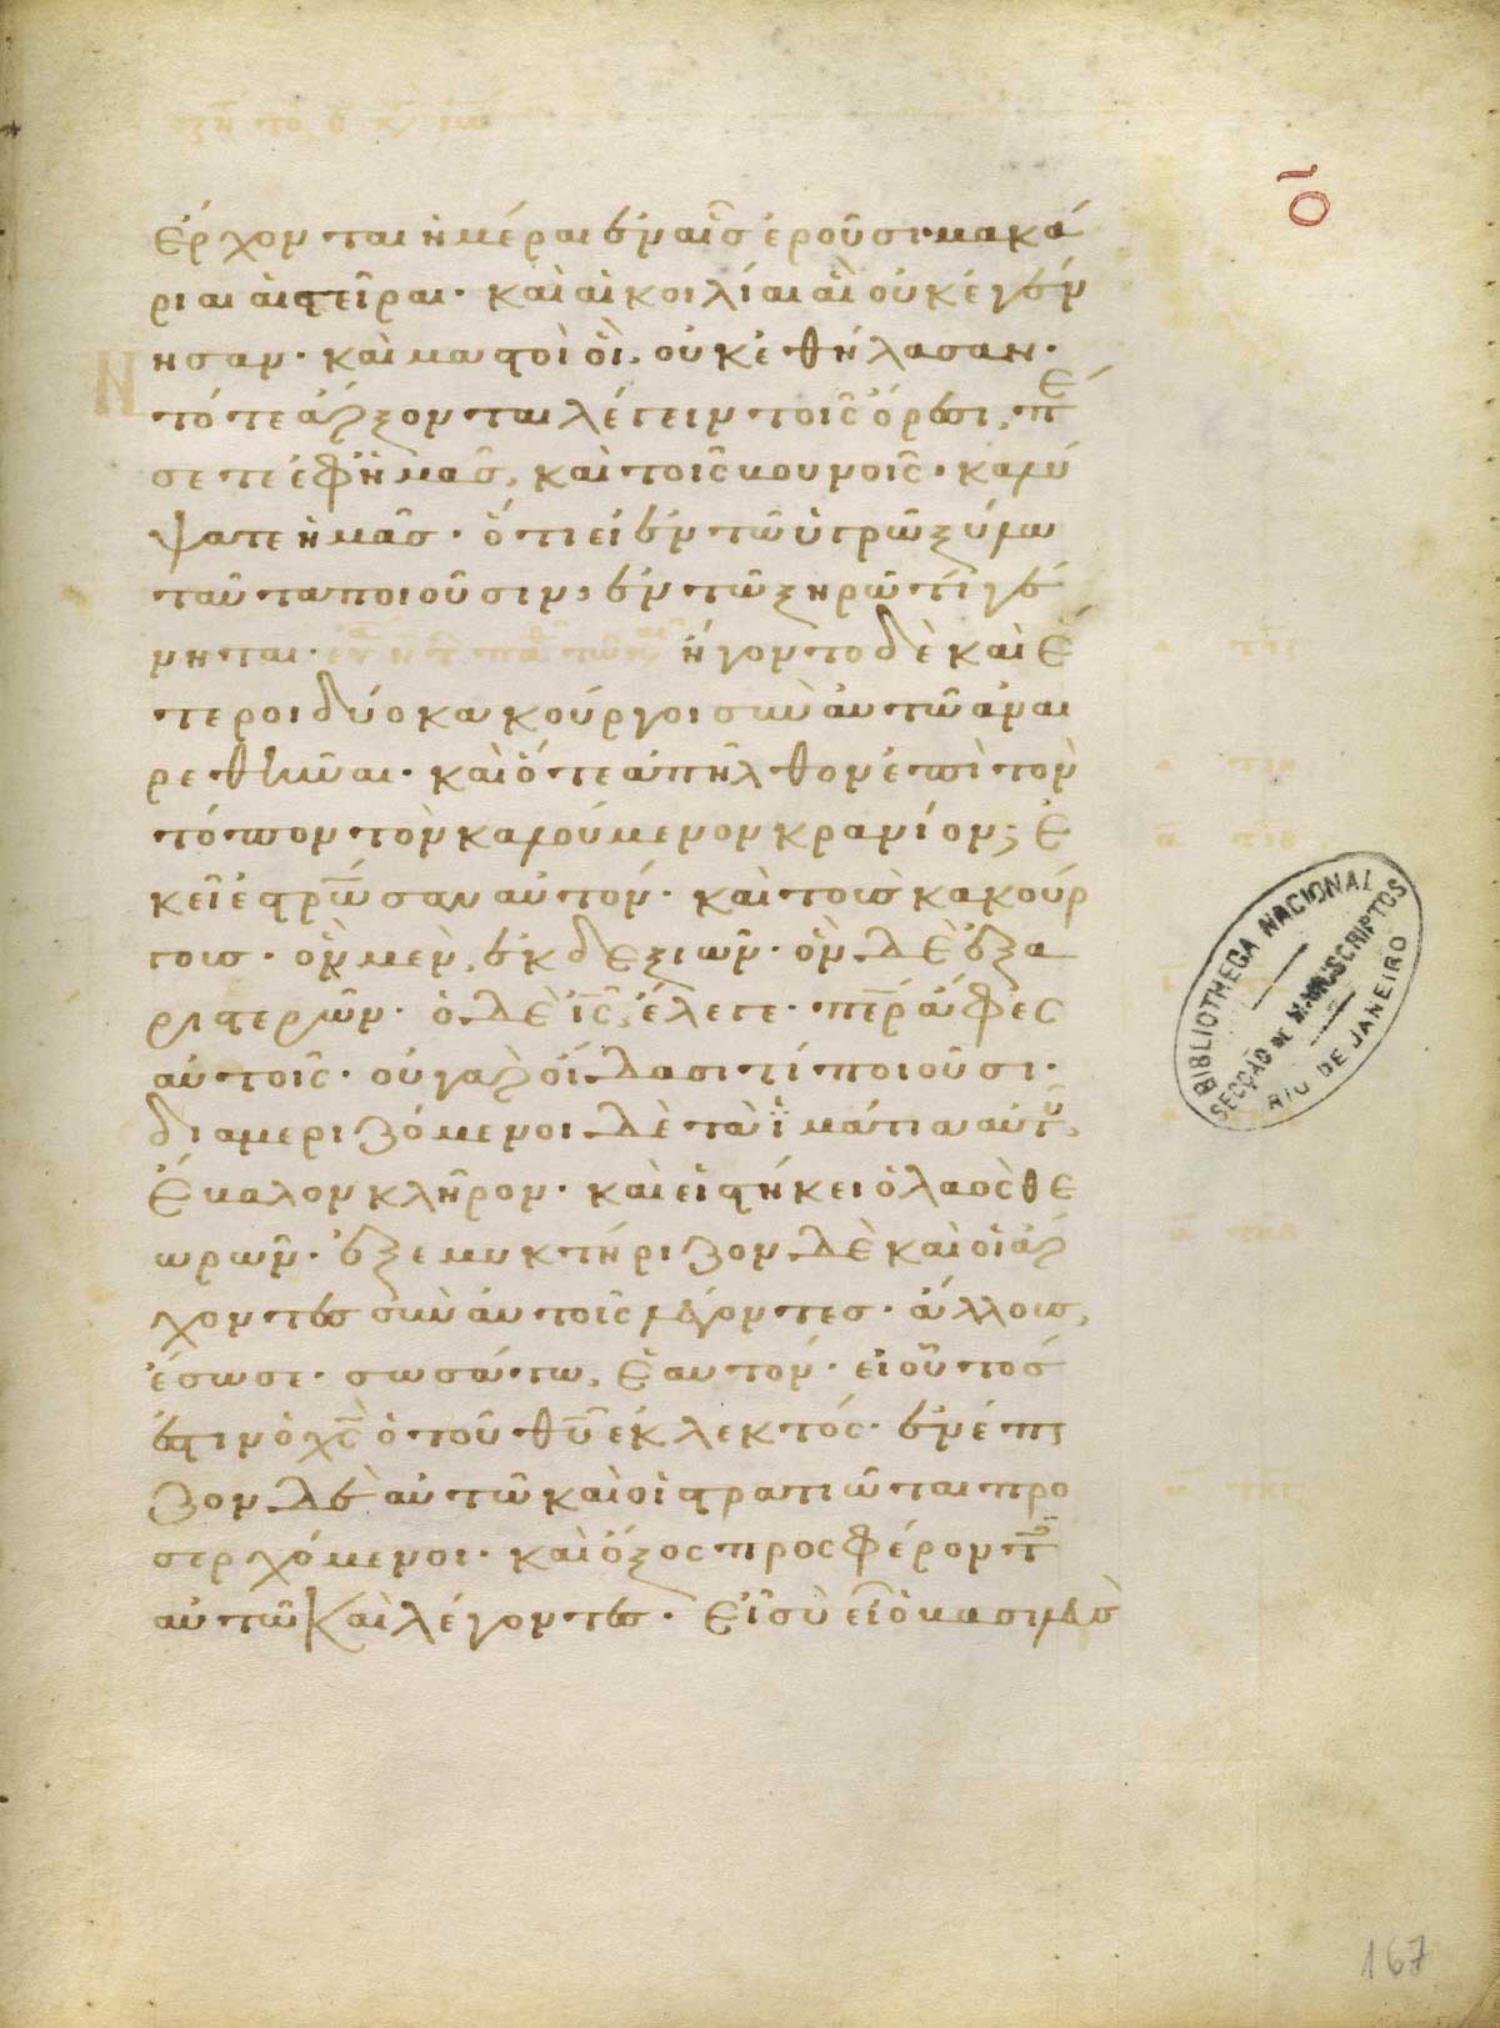 ο̄
ἔρχονται ἡμέραι ἐν αἷς ἐροῦσι· μακά
ριαι αἱ στεῖραι· καὶ αἱ κοιλίαι αἳ οὐκ ἐγέν
νησαν· καὶ μαστοὶ οἳ, οὐκ ἐθήλασαν·
τότε ἄρξονται λέγειν τοῖς ὄρεσι, πέ
σετε ἐφ ἡμᾶς, καὶ τοῖς βουνοῖς· καλύ
ψατε ἡμᾶς· ὅτι εἰ ἐν τῶ ὑγρῶ ξύλω
ταῦτα ποιοῦσιν, ἐν τῶ ξηρῶ τί γέ
νηται· ἤγοντο δὲ καὶ ἕ
τεροι δύο κακοῦργοι σὺν αὐτῶ ἀναι
ρεθῆναι· καὶ ὅτε ἀπῆλθον ἐπὶ τὸν
τόπον τὸν καλούμενον κρανίον; ἐ
κεῖ ἐστρωσαν αὐτόν· καὶ τοὺς κακούρ
γους· ὃν μὲν, ἐκ δεξιῶν· ὃν δὲ ἐξ ἀ
ριστερῶν· ὁ δὲ ις, ἔλεγε· περ ἄφες
αὐτοῖς· οὐ γὰρ οἴδασι τί ποιοῦσι·
διαμεριζόμενοι δὲ τὰ ἱμάτια αὐτοῦ,
ἔβαλον κλῆρον· καὶ εἱστήκει ὁ λαὸς θε
ωρῶν· ἐξεμυκτήριζον δὲ καὶ οἱ ἄρ
χοντες σὺν αὐτοῖς λέγοντες· ἄλλους,
ἔσωσε· σωσάτω, ἑαυτόν· εἰ οὗτός
ἐστιν ὁ χς ὁ τοῦ θυ ἐκλεκτός· ἐνέπαι
ζον δὲ αὐτῶ καὶ οἱ στρατιῶται προ
σερχόμενοι· καὶ ὄξος προσφέροντες
αὐτῶ καὶ λέγοντες· εἰ σὺ εἶ ὁ βασιλεὺς
BIBLIOTHECA NACIONAL
SECÇÃO DE MANUSCRIPTOS
RIO DE JANEIRO
167